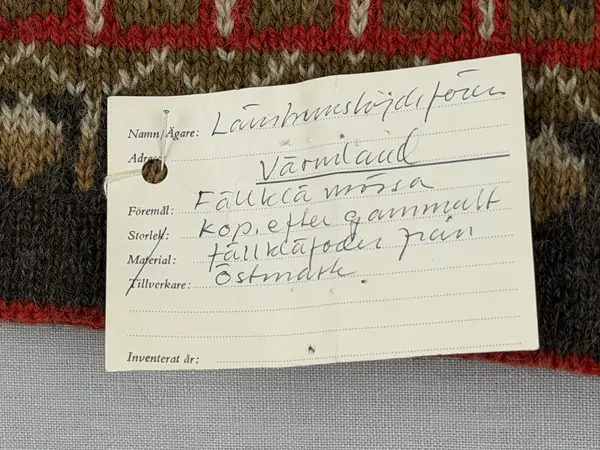 Namn/Ägare: Länshemslöjdsfören
Adress:
Värmland
Föremål: Fällklä mössa
Storlek: kop. efter gammalt
Material: fällkläfoder från
Tillverkare: Östmark.
Inventerat år: